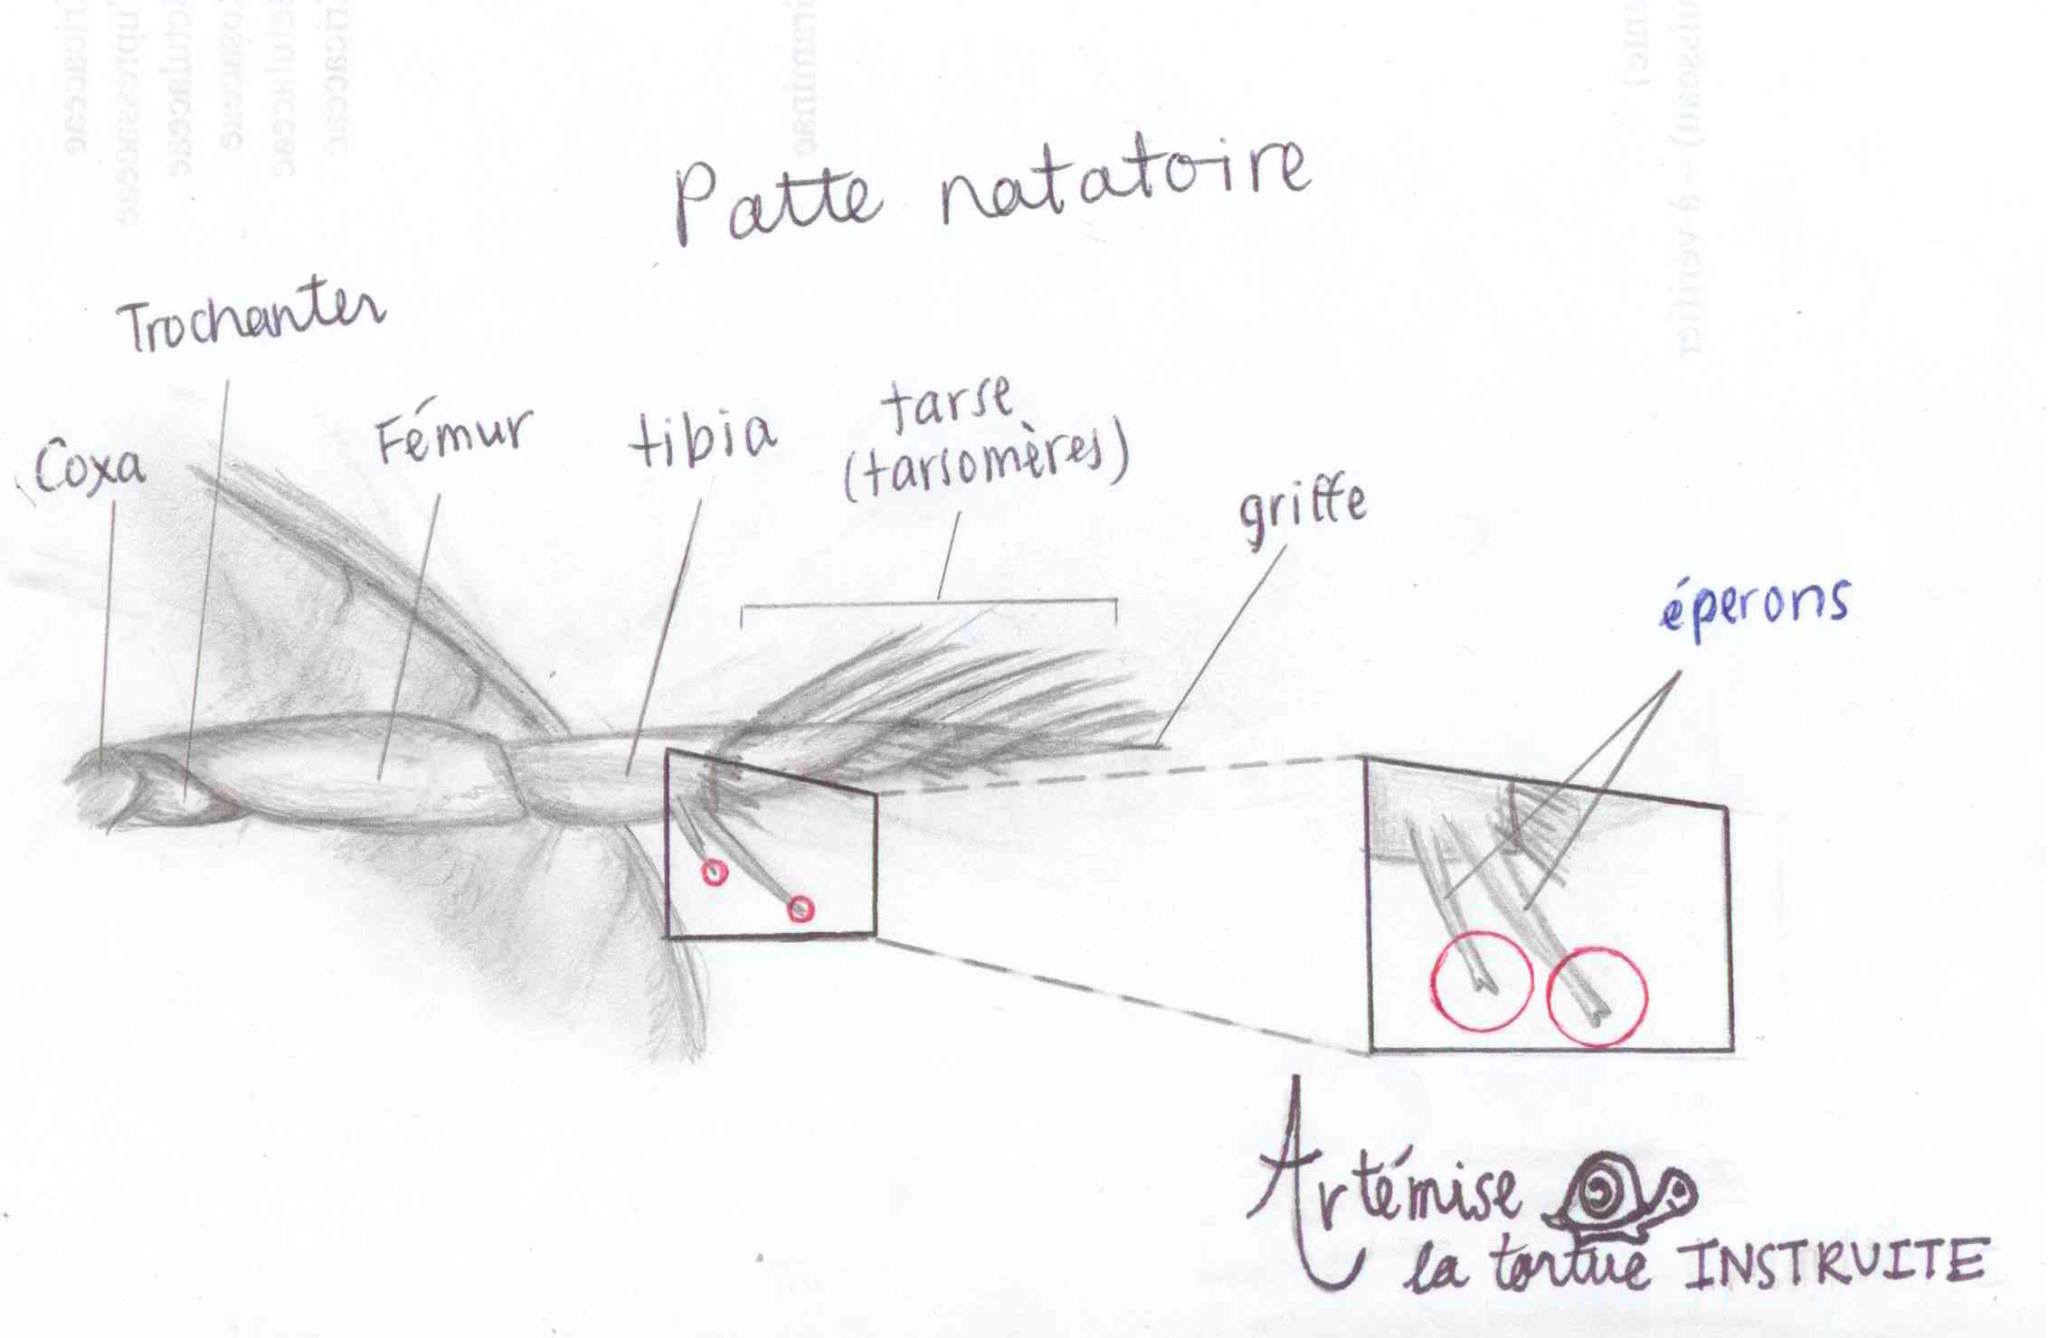 Patte natatoire
Trochanter
Coxa
Fémur
tibia
tarse
(tarsomères)
griffe
éperons
Artémise
la tortue INSTRUITE